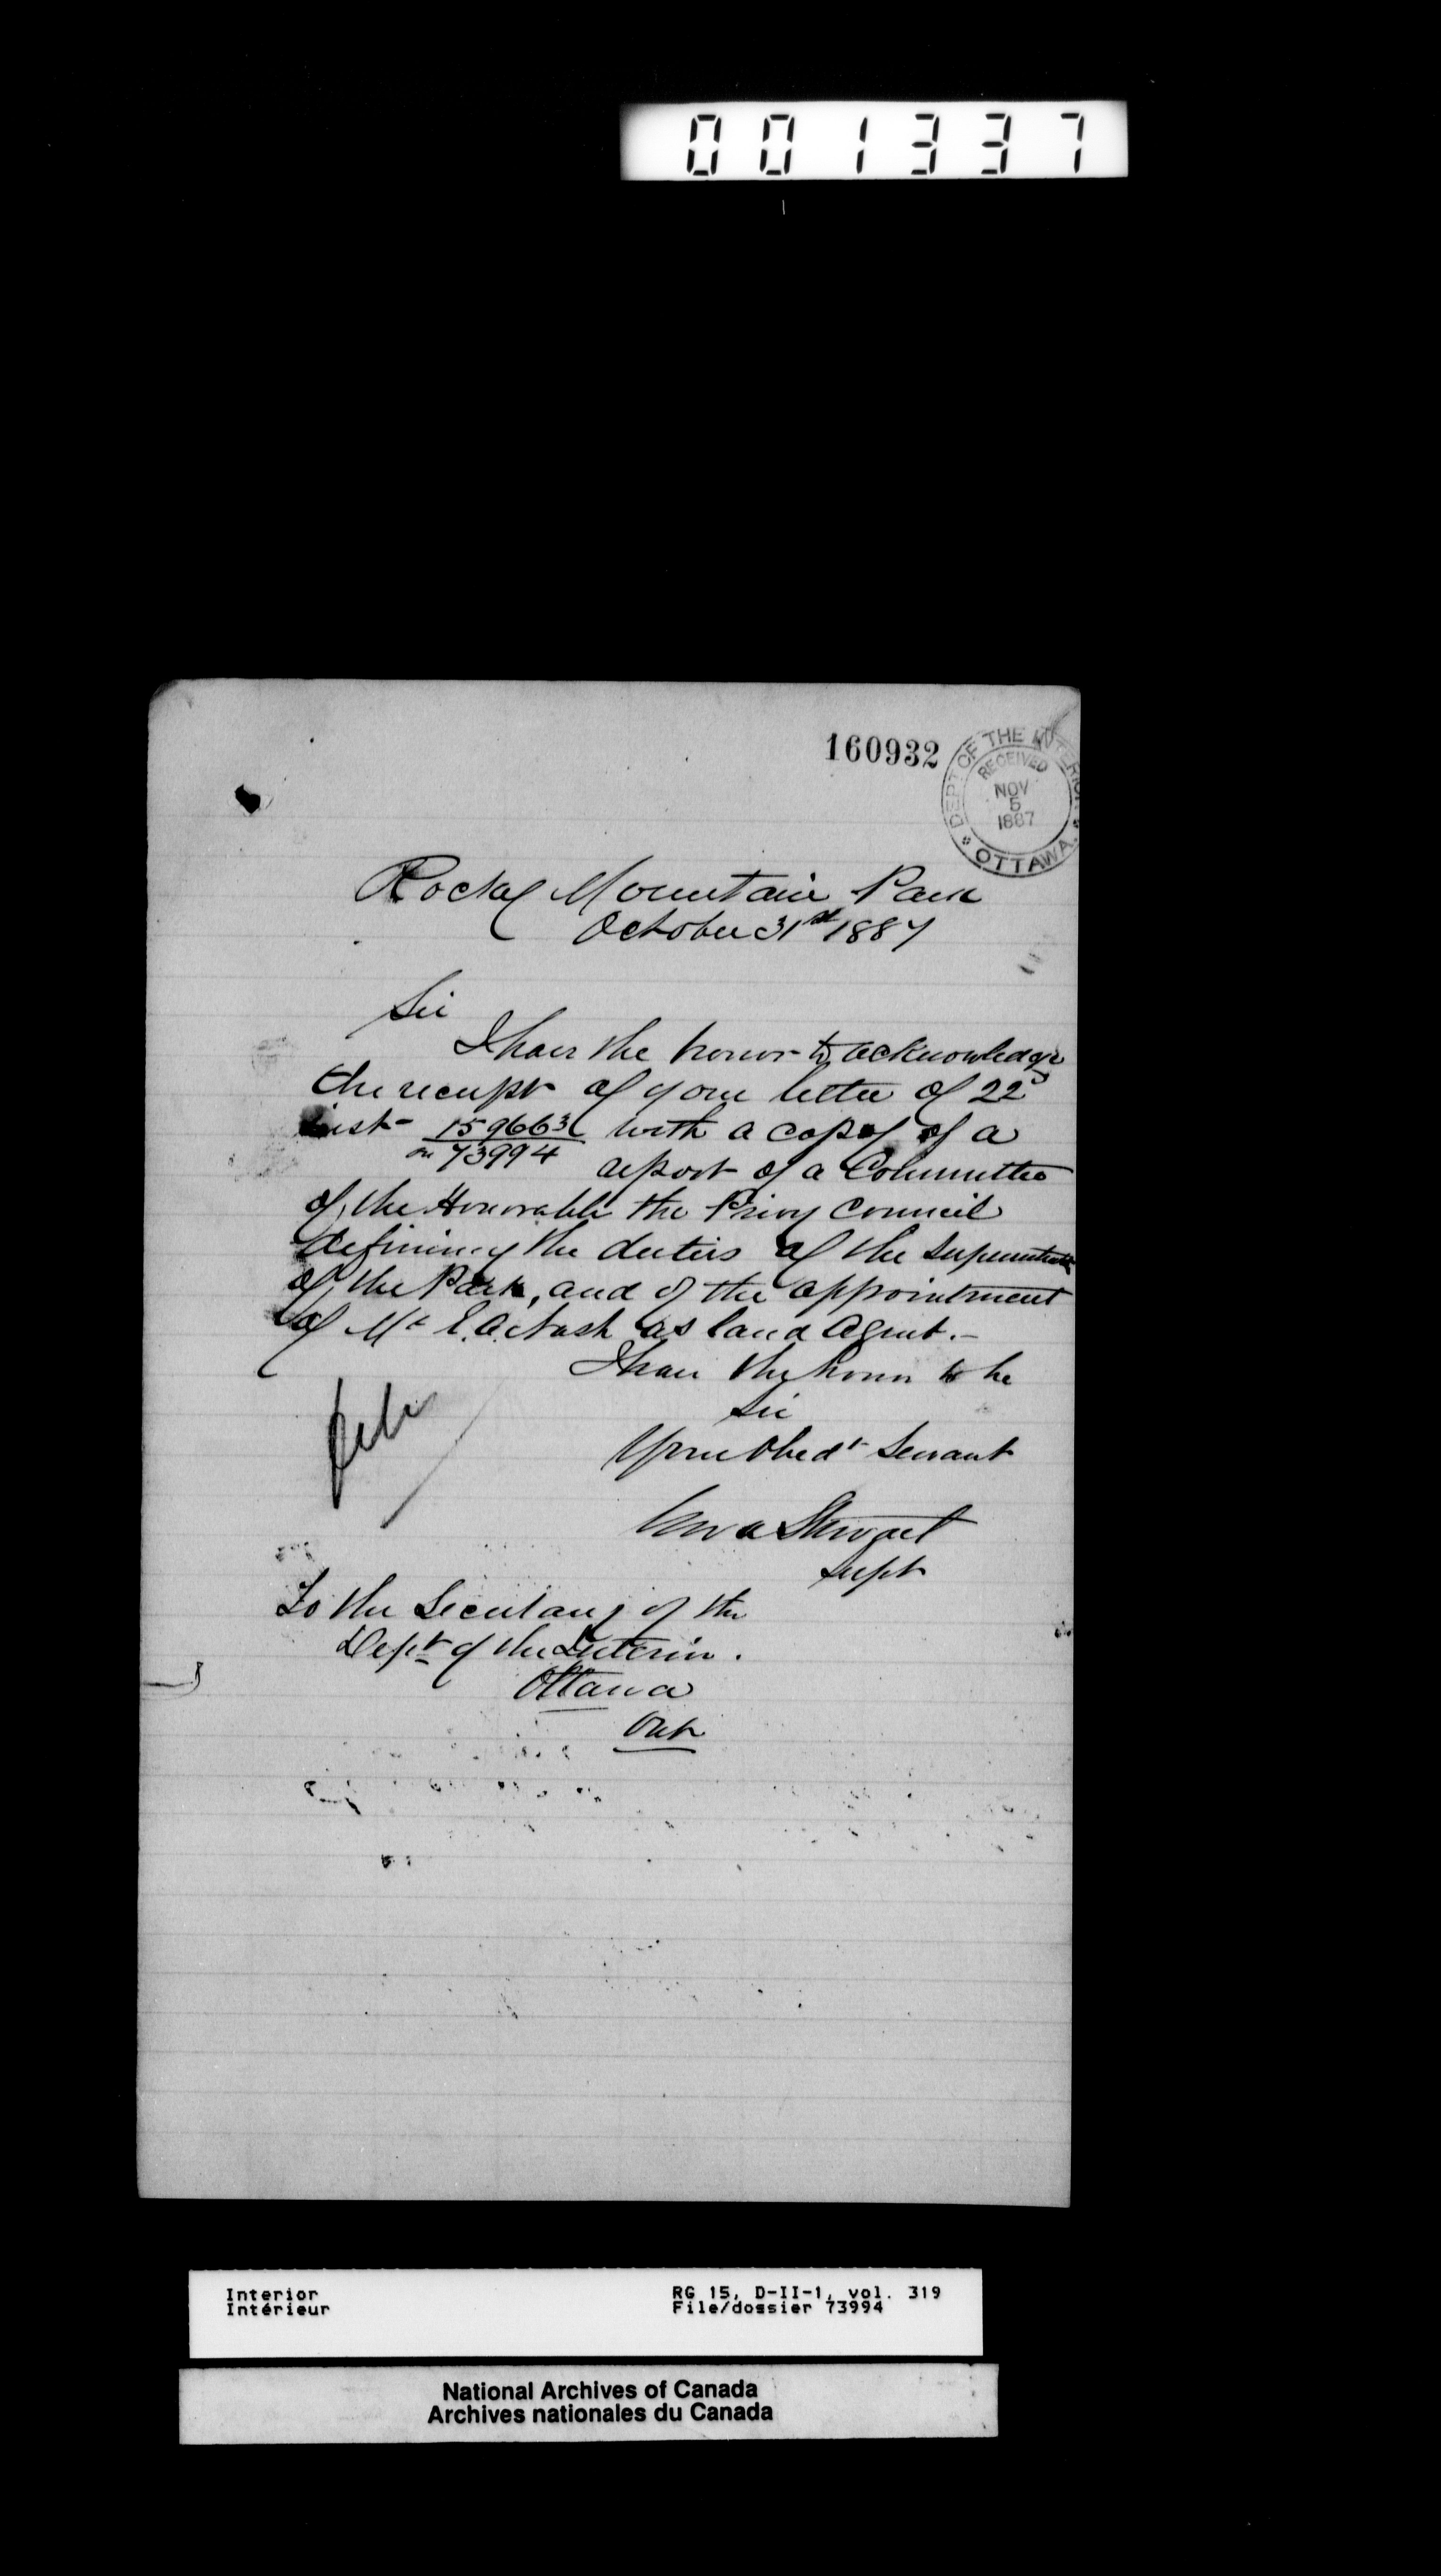 001337
160932
DEPT OF THE INTERIOR
RECEIVED
NOV
5
1887
OTTAWA.
Rocky Mountain Park
October 31st 1887
Sir
I have the honor to acknowledge
the receipt of your letter of 22d
inst- 159663 with a copy of a
on 73994 report of a Committee
of the Honorable the Privy Council
defining the duties of the Superintend
of the Park, and of the appointment
of Mr E.A. Nash as land agent.-
I have the honor to be
Sir
Your Obedt Servant
Geo A Stewart
Supt
To the Secretary of the
Dept of the Interior.
Ottawa
Ont
Interior
Intérieur
RG 15, D-II-1, vol. 319
File/dossier 73994
National Archives of Canada
Archives nationales du Canada